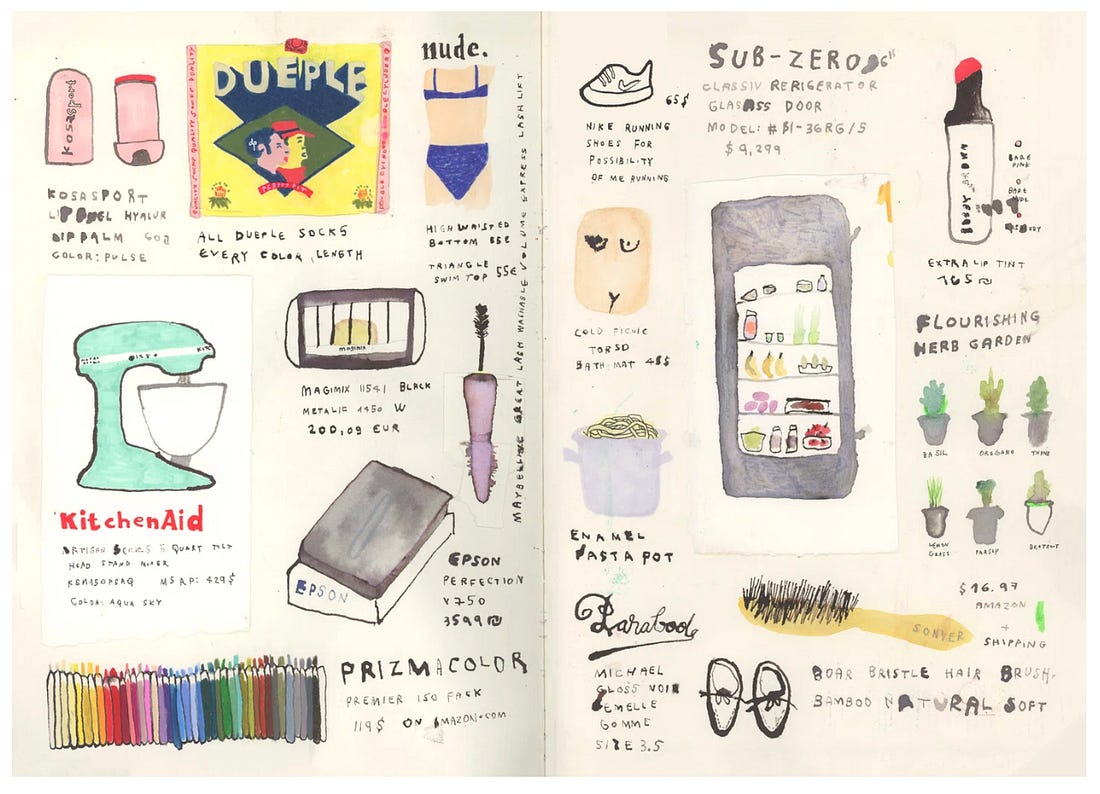 kosasport
KOSASPORT
HYALUR
COLOR: PULSE
DUEPLE
ALL DUEPLE SOCKS
EVERY COLOR, LENGTH
nude.
HIGH WAISTED
BOTTOM 55€
TRIANGLE
SWIM TOP 55€
MAYBELLINE GREAT LASH WASHABLE VOLUME EXPRESS LASH LIFT
KitchenAid
ARTISAN SERIES 5 QUART TILT
HEAD STAND MIXER
MSRP: 429$
COLOR: AQUA SKY
magimix
MAGIMIX 11541 BLACK
METALIC 1450 W
200,09 EUR
EPSON
EPSON
PERFECTION
V750
3599₪
PRIZMACOLOR
PREMIER 150 PACK
119$ ON AMAZON.COM
65$
NIKE RUNNING
SHOES FOR
POSSIBILITY
OF ME RUNNING
COLD PICNIC
TORSO
BATH MAT 48$
ENAMEL
PASTA POT
Paraboot
MICHAEL
GLOSS NOIR
GOMME
SIZE 3.5
SUB-ZERO
CLASSIV RERIGERATOR
DOOR
MODEL: #BI-36RG/S
$9,299
BARE
PINK
BARE
EXTRA LIP TINT
165₪
FLOURISHING
HERB GARDEN
BASIL
OREGANO
THYME
LEMON
GRASS
PARSLY
$16.97
AMAZON
+
SHIPPING
SONYER
BOAR BRISTLE HAIR BRUSH,
BAMBOO NATURAL SOFT